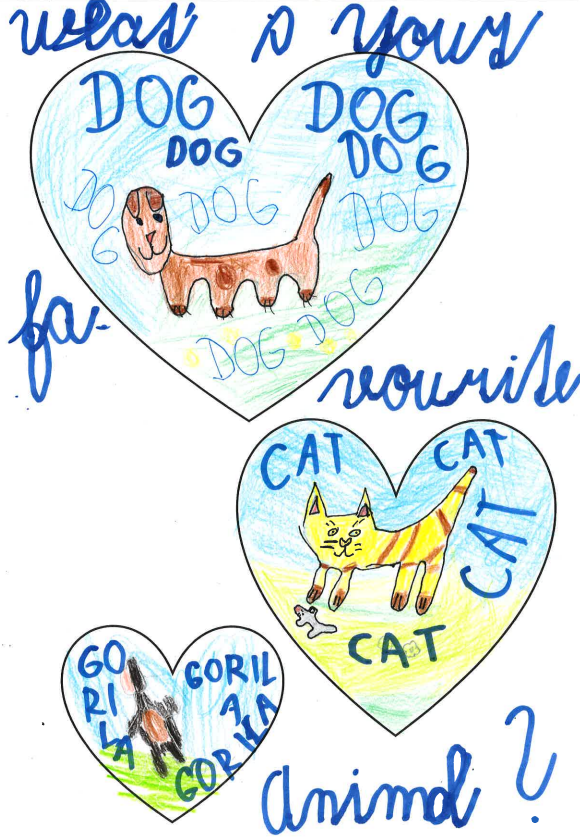 What's your
DOG DOG
DOG DOG
DOG DOG DOG
DOG DOG
fa-
vourite
CAT CAT
CAT
CAT
GORILA GORILA
GORILA
animal?